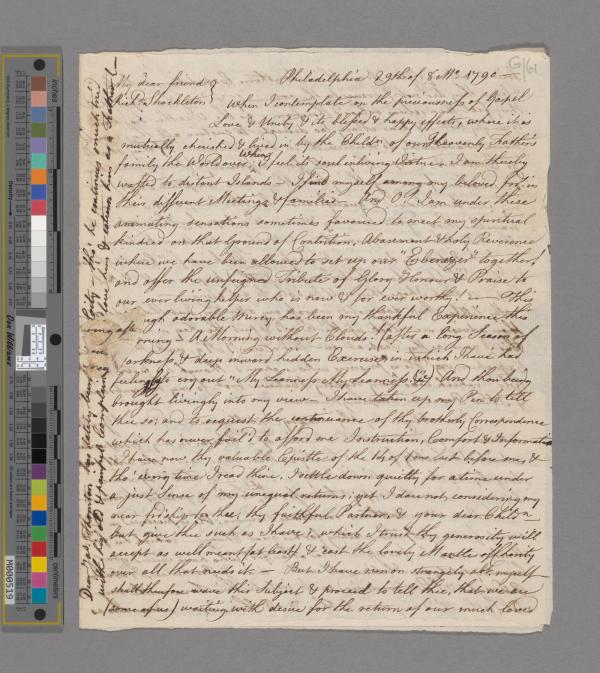 G/61
My dear friend
Richd. Shackleton
Philadelphia 29th of 8 Mo. 1790
When I contemplate on the preciousness of Gospel
Love & Unity & its blessed & happy effects, where it is
mutually cherished & lived in by the Childn. of our Heavenly Father's
family the World over, When I feel its soul enliving Virtue, I am thereby
wafted to distant Islands — I find myself among my beloved frds. in
their different Meetings & families — And O! I am under these
animating sensations sometimes favoured to meet my spiritual
kindred on that Ground of Contrition, Abasement & holy Reverence
where we have been allowed to set up our "Ebenezer" together,
and offer the unfeigned Tribute of Glory Honour & Praise to
our everliving helper who is now & for ever worthy! — This
adorable Mercy has been my thankful Experience this
A Morning without Clouds (after a long Season of
darkness, & deep inward hidden Exercises in which I have had
feelingly to cry out "My Leanness My Leanness, &c) And thou being
brought livingly into my view — I have taken up my Pen to tell
thee so; and to request the continuance of thy brotherly Correspondence
which has never fail'd to afford me Instruction, Comfort & Information
I have now thy valuable Epistle of the 14 of last before me, &
tho' every time I read thine, I settle down quietly for a time under
a just Sense of my unequal returns; yet I dare not, considering my
near frdship to thee, thy faithful Partner, & your dear Childn.
but give thee such as I have, which I trust thy generosity will
accept as well meant (at least) & cast the lovely Mantle of Charity
over all that needs it — But I have run on strangely abt. myself
shall therefore wave this Subject & proceed to tell thee, that we are
(some of us) waiting with desire for the return of our much loved
inches
centimeters
Don Williams
M000519